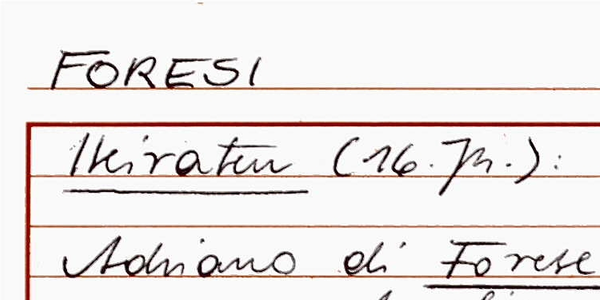 FORESI
Heiraten (16. Jh.):
Adriano di Forese